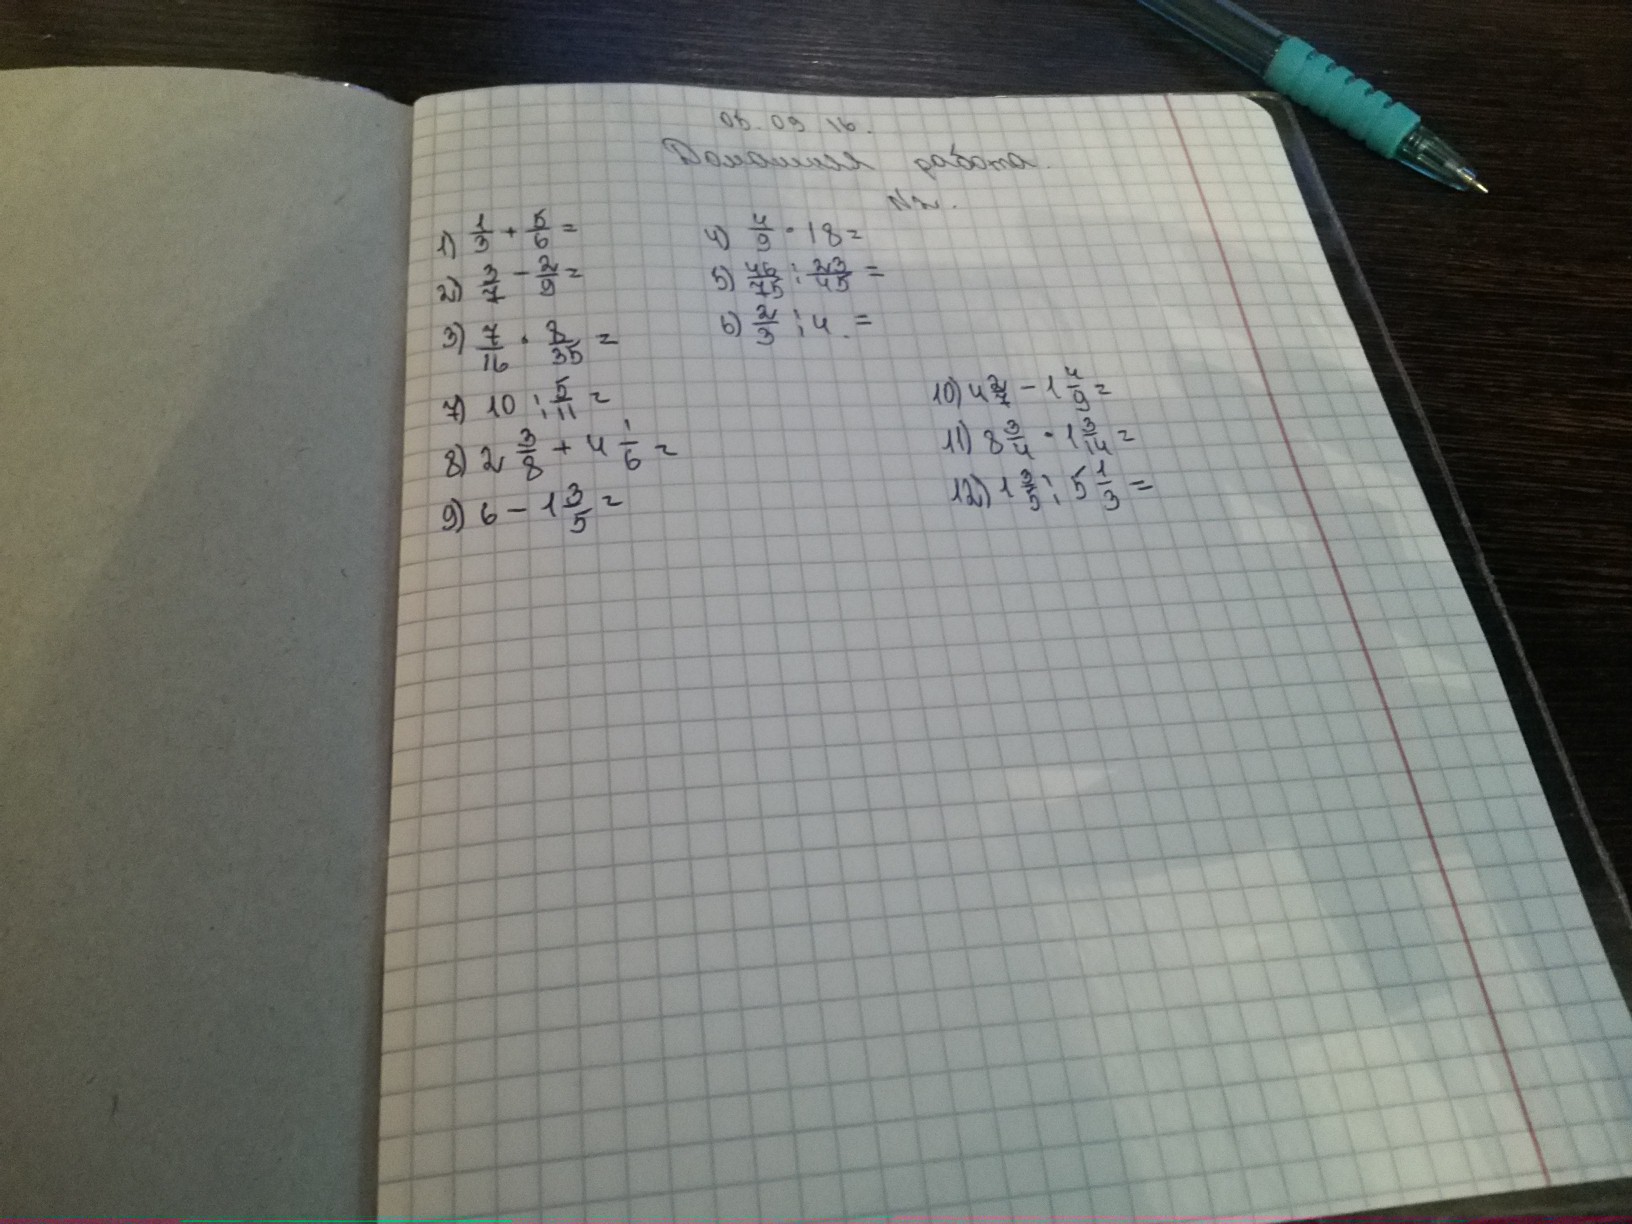 05.09.16.
Домашняя работа.
№2.
1) 1/3 + 5/6 =
2) 3/7 - 2/9 =
3) 7/16 · 8/35 =
4) 4/9 · 18 =
5) 46/75 : 23/45 =
6) 2/3 : 4 =
7) 10 : 5/11 =
8) 2 3/8 + 4 1/6 =
9) 6 - 1 3/5 =
10) 4 2/7 - 1 4/9 =
11) 8 3/4 · 1 3/14 =
12) 1 3/5 : 5 1/3 =